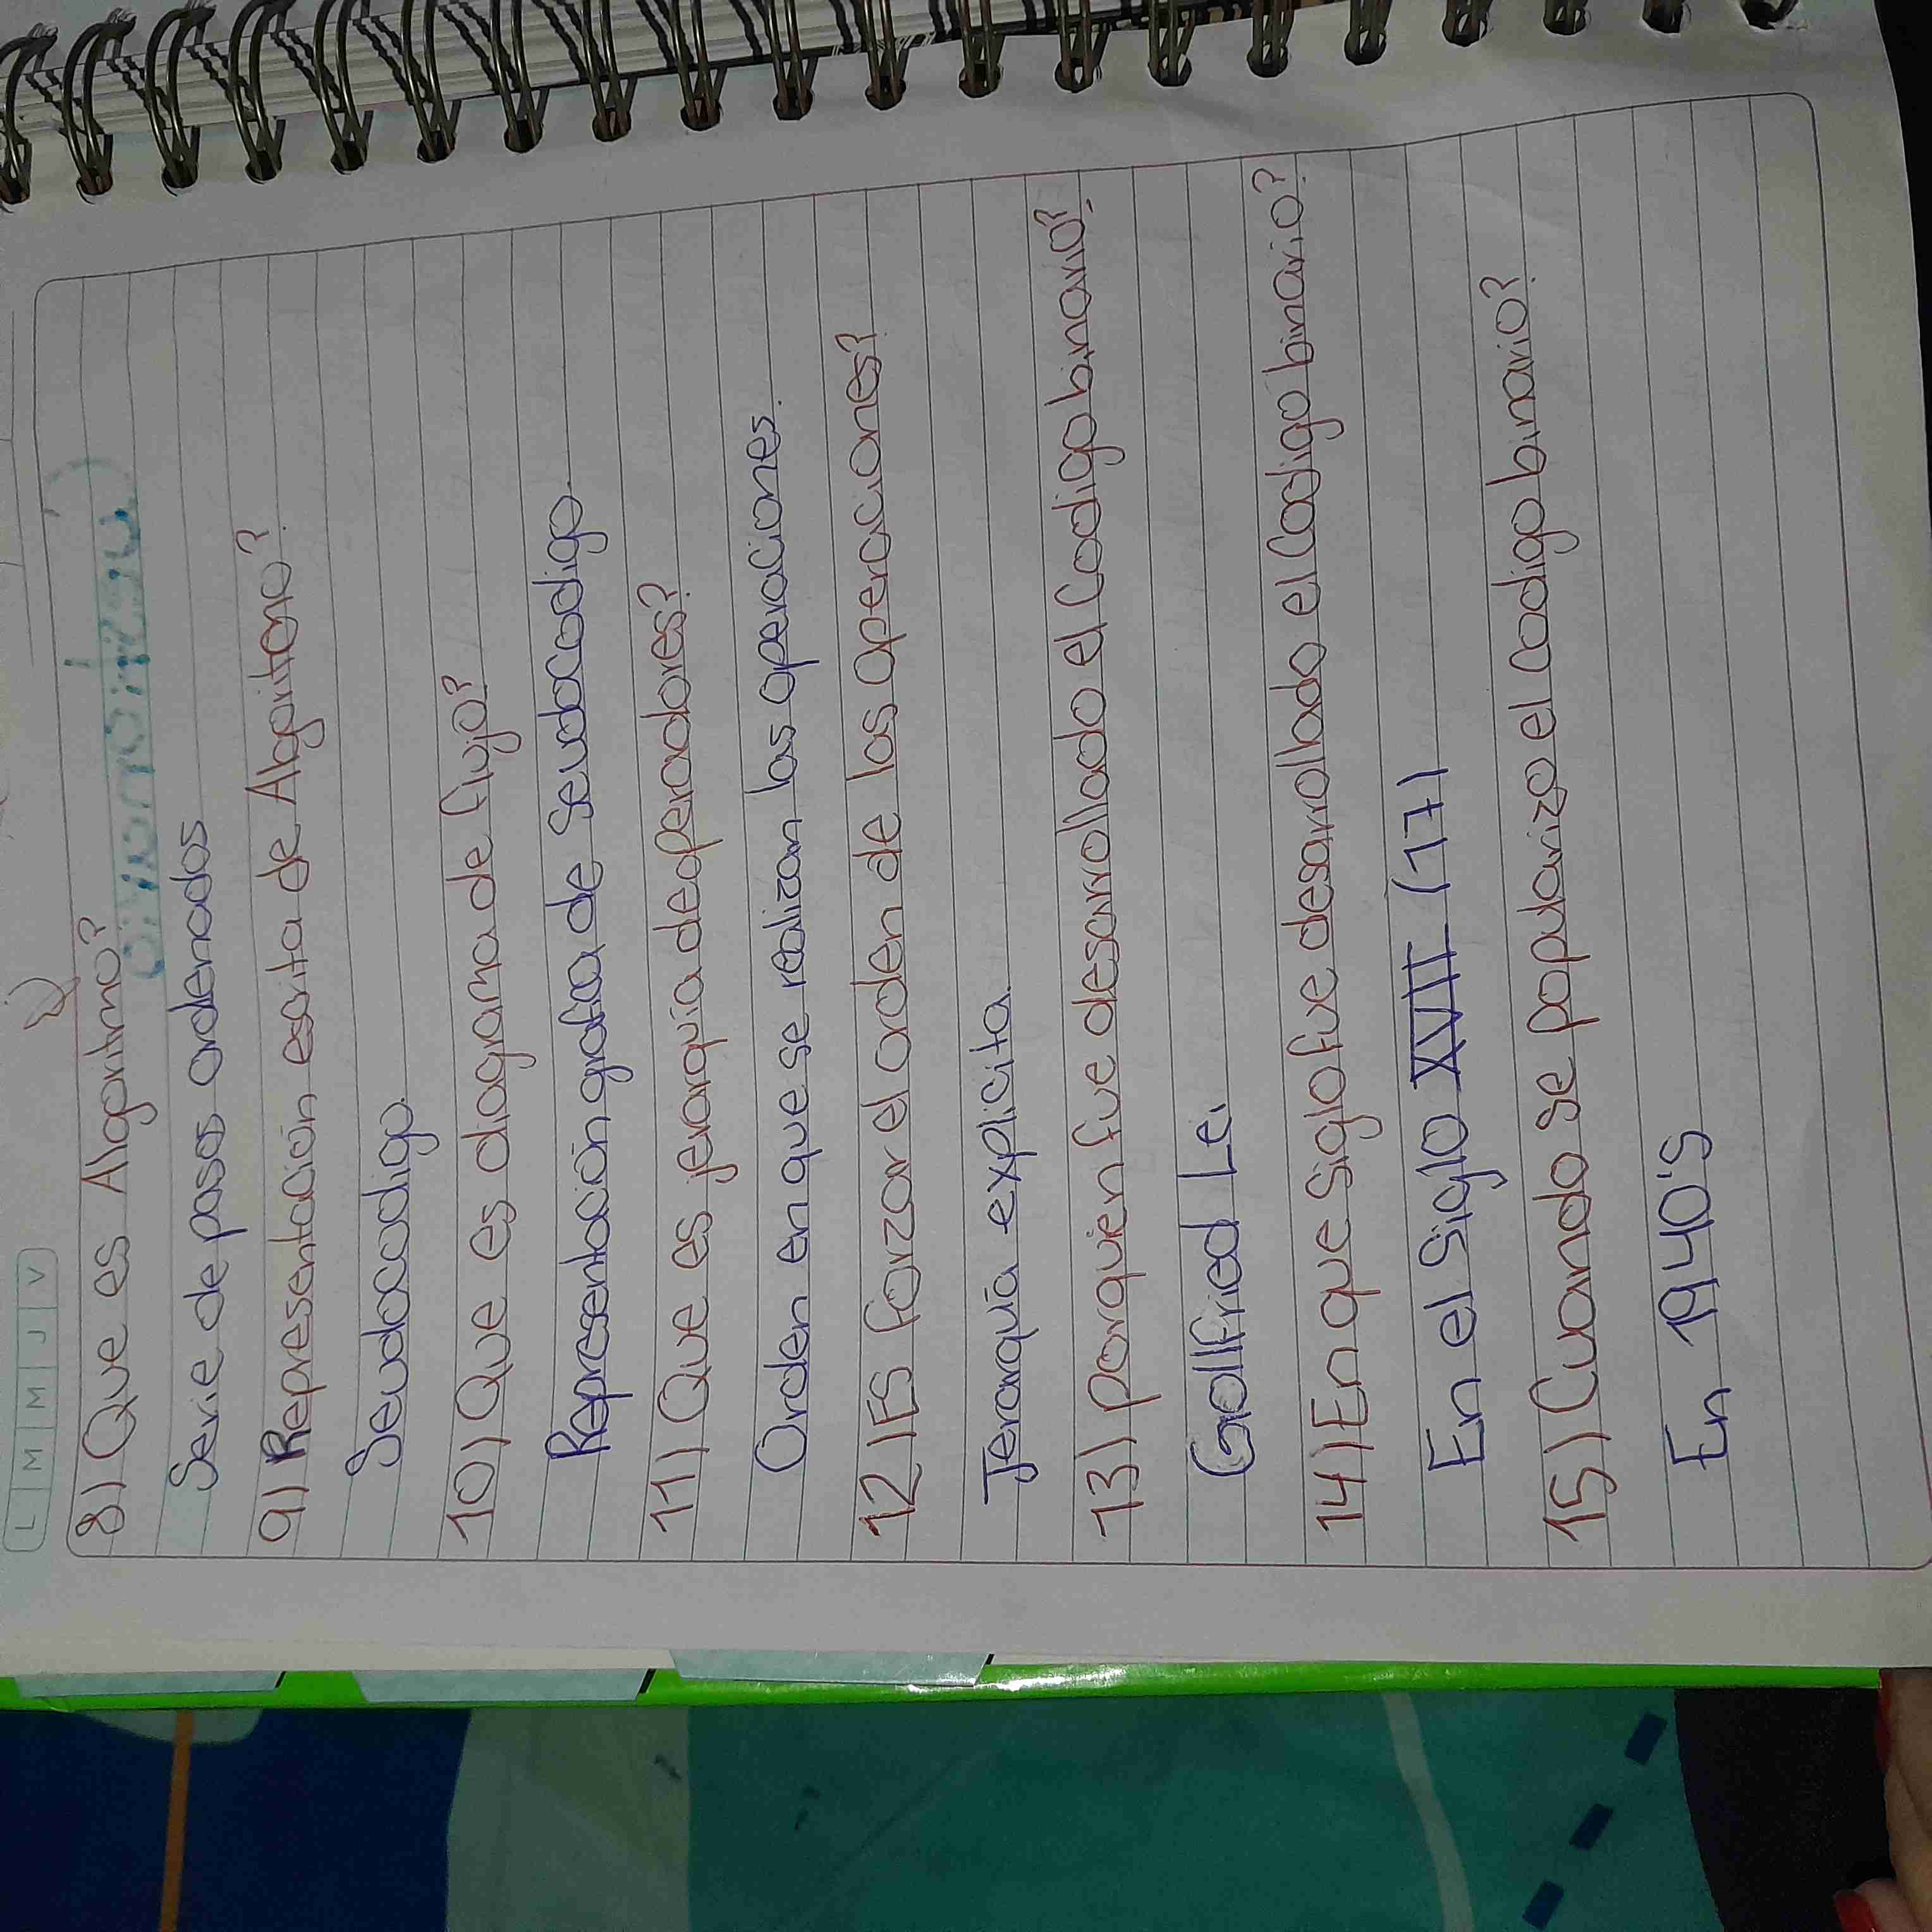 L M M J V
8) Que es Algoritmo?
Serie de pasos ordenados
9) Representación escrita de Algoritmo?
Seudocodigo.
10) Que es diagrama de flujo?
Representación grafica de Seudocodigo.
11) Que es jerarquía de operadores?
Orden en que se realizan las operaciones.
12) ES forzar el orden de las operaciones?
Jerarquía explicita.
13) porquien fue desarrollado el Codigo binario?
Gollfried Lei
14) En que Siglo fue desarrollado el Codigo binario?
En el Siglo XVII (17)
15) Cuando se popularizo el Codigo binario?
En 1940's